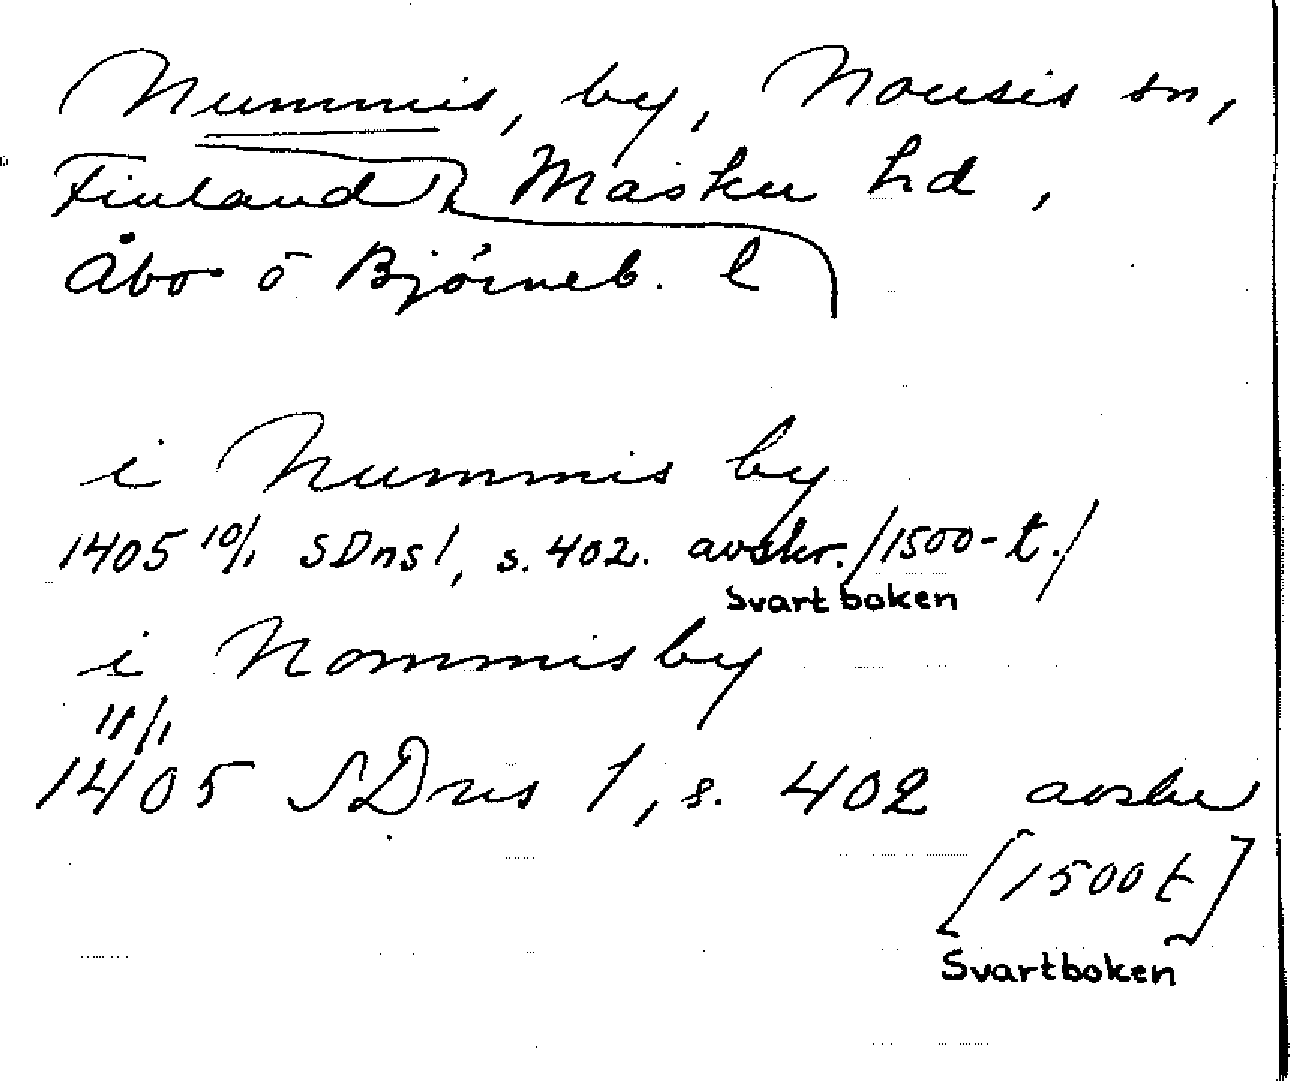 Nummis, by, Nousis sn,
Finland, Masku hd,
Åbo o Björneb. l
i Nummis by
1405 10/1 SDns 1, s. 402. avskr. /1500-t./
Svartboken
i Nommisby
11/1
1405 SDns 1, s. 402 avskr
[1500 t]
Svartboken